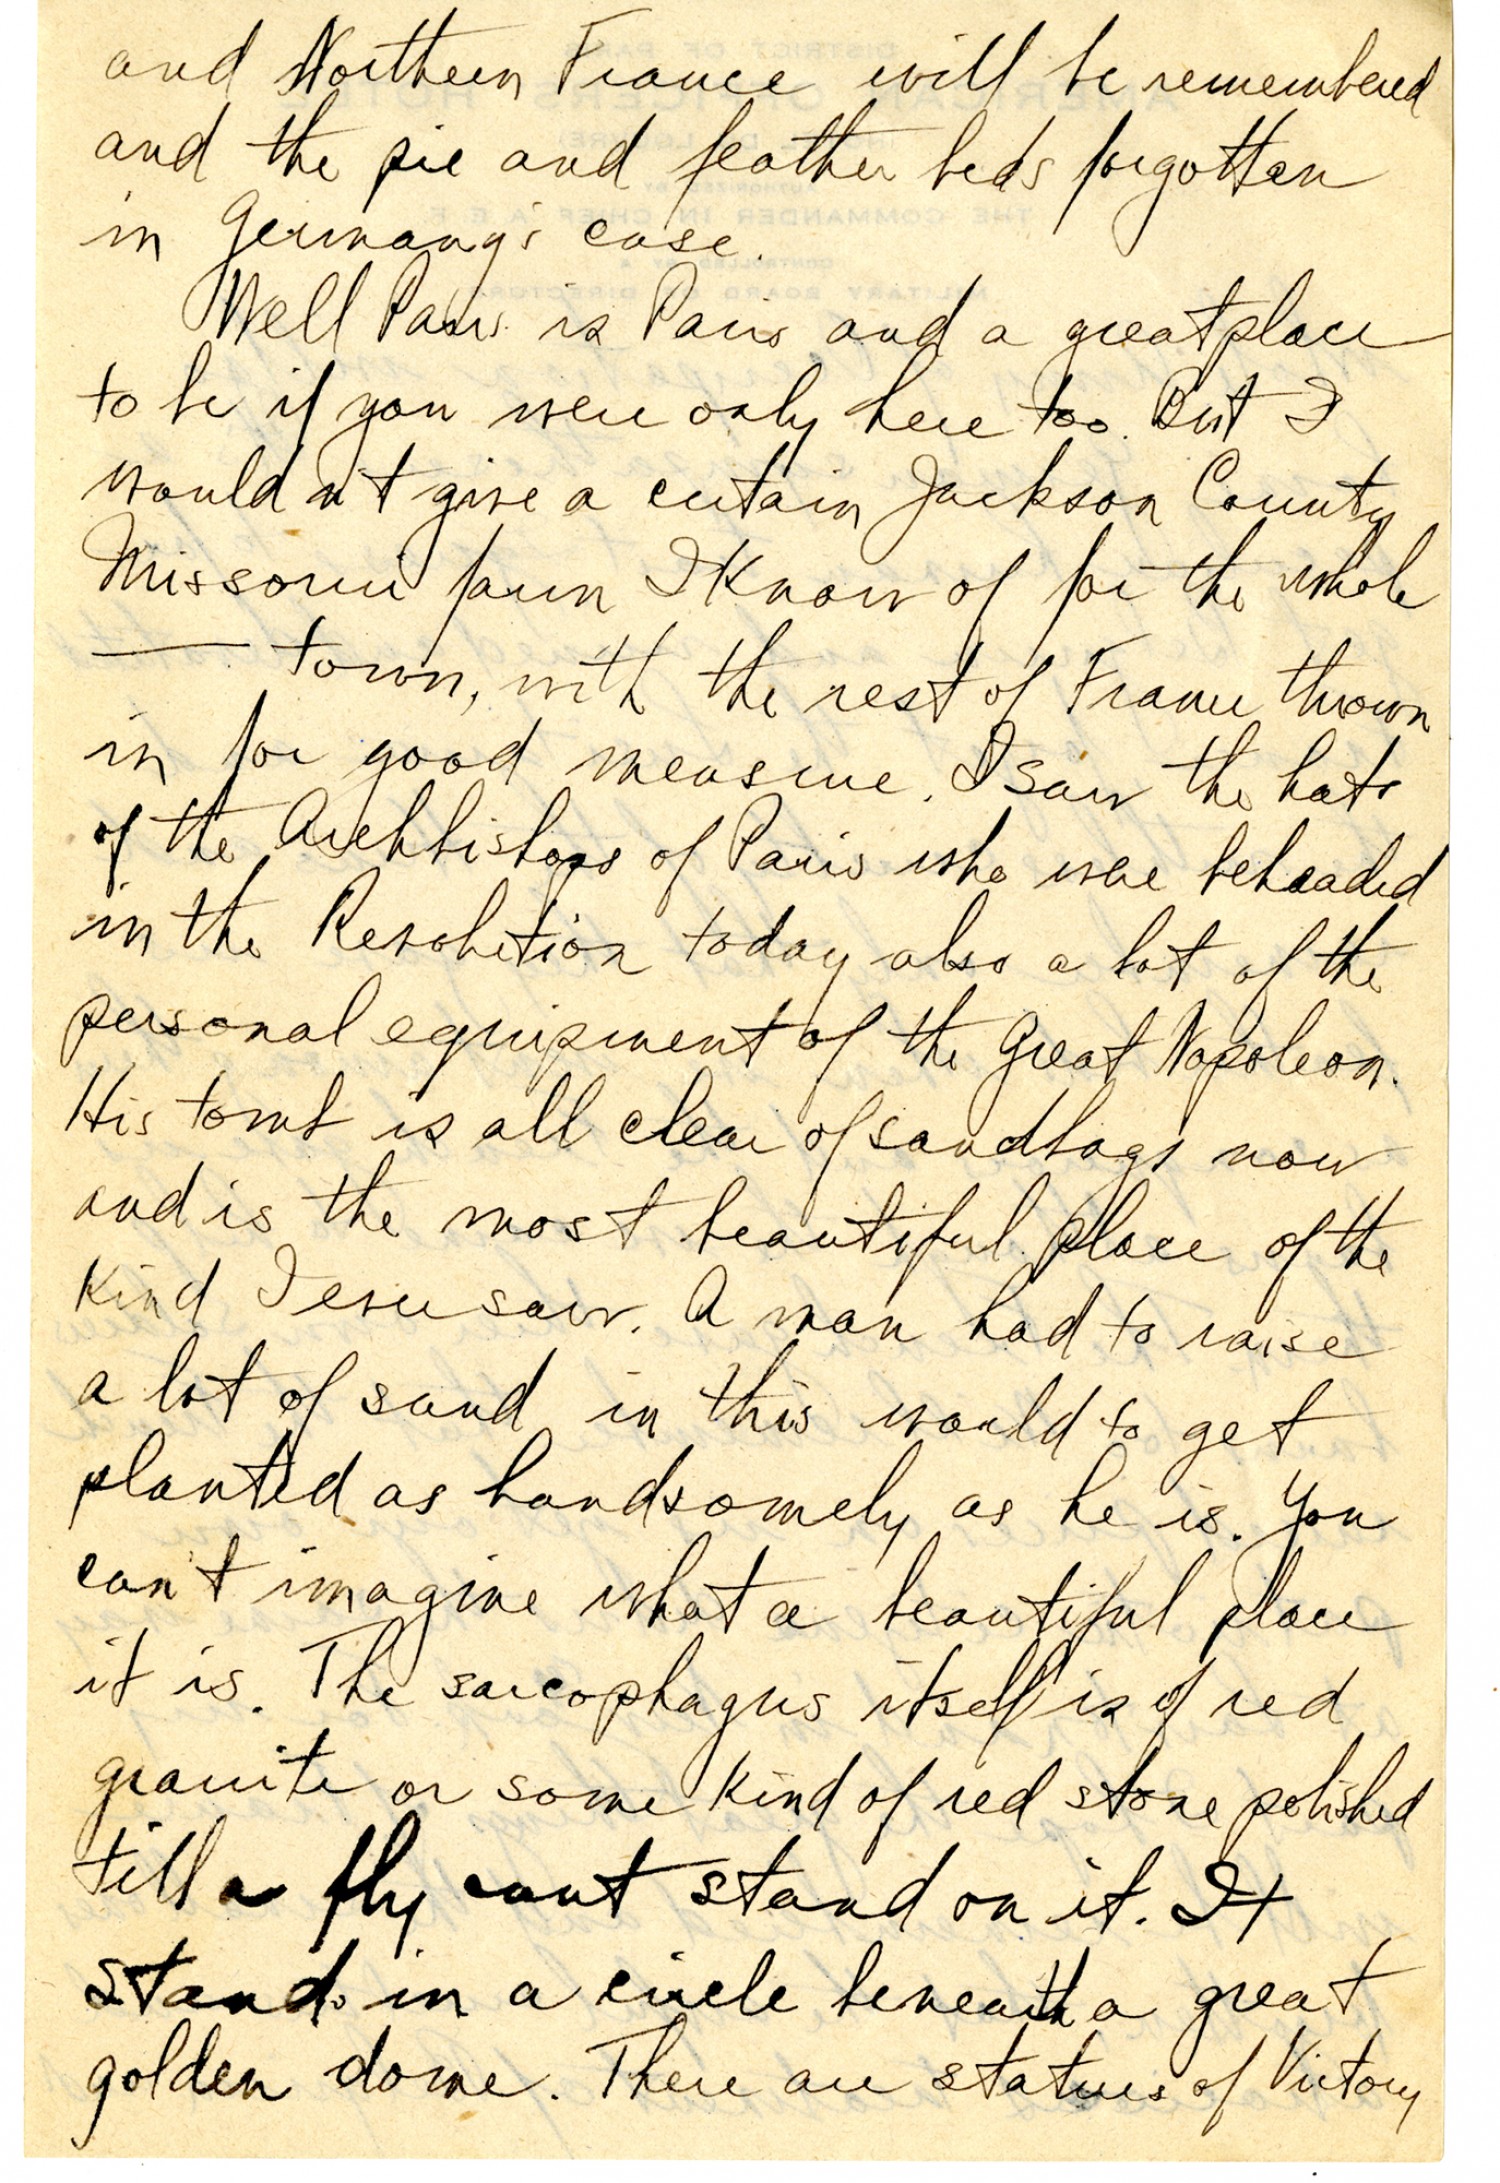 and Northern France will be remembered
and the pie and feather beds forgotten
in Germany's case.
Well Paris is Paris and a great place
to be if you were only here too. But I
would n't give a certain Jackson County
Missouri farm I know of for the whole
— town, with the rest of France thrown
in for good measure. I saw the hats
of the Archbishops of Paris who were beheaded
in the Revolution today also a lot of the
personal equipment of the Great Napoleon.
His tomb is all clear of sandbags now
and is the most beautiful place of the
kind I ever saw. A man had to raise
a lot of sand in this world to get
planted as handsomely as he is. You
can't imagine what a beautiful place
it is. The sarcophagus itself is of red
granite or some kind of red stone polished
till a fly cant stand on it. It
stands in a circle beneath a great
golden dome. There are statues of Victory